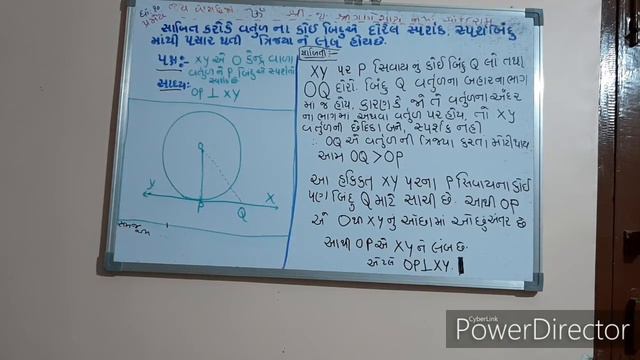 સાબિત કરો કે વર્તુળ ના કોઈ બિંદુએ દોરેલ સ્પર્શક, સ્પર્શબિંદુ
માંથી પસાર થતી ત્રિજ્યા ને લંબ હોય છે.
પક્ષ:- XY એ O કેન્દ્ર વાળા
વર્તુળને P બિંદુએ સ્પર્શતો
સ્પર્શક છે
સાધ્ય:-
OP ⊥ XY
O
Y
P
Q
X
સાબિતી:-
XY પર P સિવાયનું કોઈ બિંદુ Q લો તથા
OQ દોરો. બિંદુ Q વર્તુળના બહારના ભાગ
માં જ હોય, કારણ કે જો તે વર્તુળના અંદર
ના ભાગમાં અથવા વર્તુળ પર હોય, તો XY
વર્તુળની છેદિકા બને, સ્પર્શક નહી
∴ OQ એ વર્તુળ ની ત્રિજ્યા કરતા મોટી થાય
આમ OQ > OP
આ હકિકત XY પરના P સિવાયના કોઈ
પણ બિંદુ Q માટે સાચી છે. આથી OP
એ O થી XY નું ઓછામાં ઓછું અંતર છે
આથી OP એ XY ને લંબ છે.
એટલે OP ⊥ XY.
CyberLink
PowerDirector